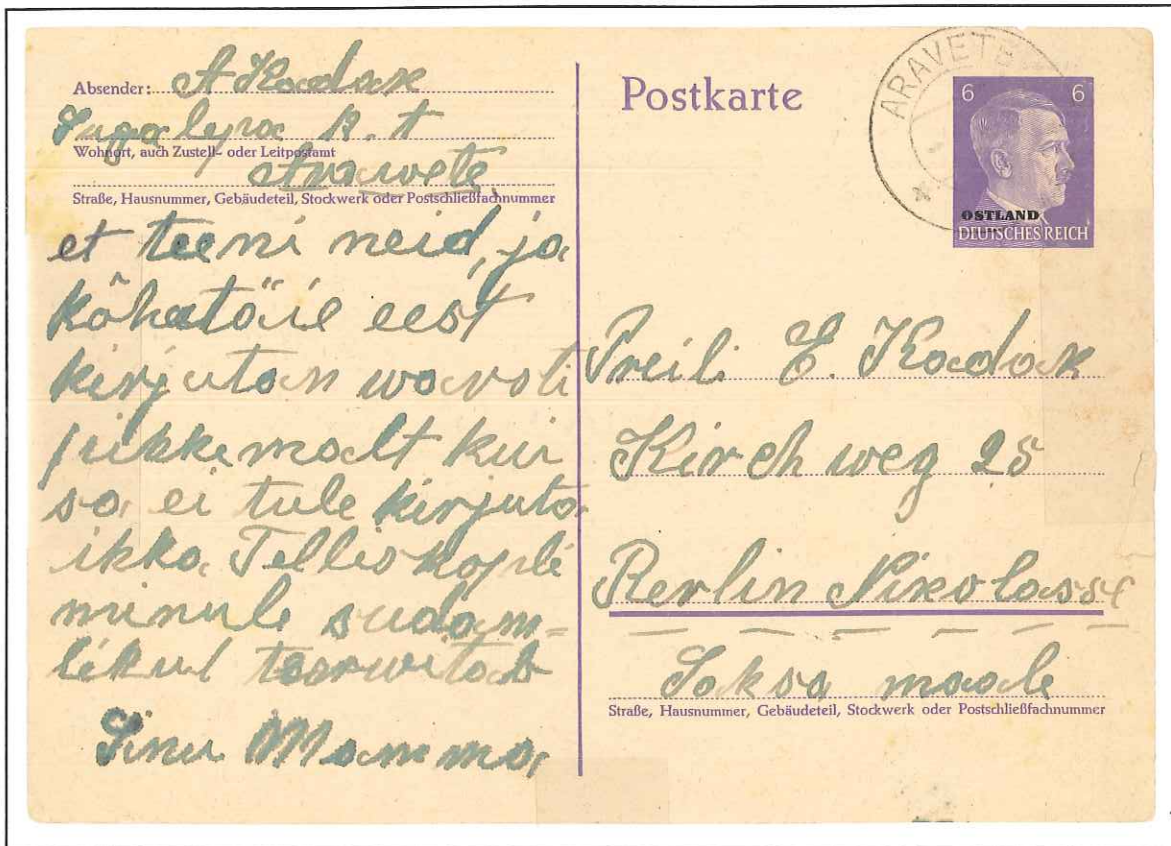 Absender: A Kadak
Jagalypa K. t
Wohnort, auch Zustell- oder Leitpostamt
Arawete
Straße, Hausnummer, Gebäudeteil, Stockwerk oder Postschließfachnummer
et teeni neid, ja
kõhutäie eest
kirjutan warsti
pikkemalt kui
sa ei tule kirjuta
ikka
minule südam=
likul teerwitab
Sinu Mamma
Postkarte
ARAVETE
6 6
OSTLAND
DEUTSCHES REICH
Preili E. Kadak
Kirch weg 25
Berlin Nikolasse
Saksa maale
Straße, Hausnummer, Gebäudeteil, Stockwerk oder Postschließfachnummer